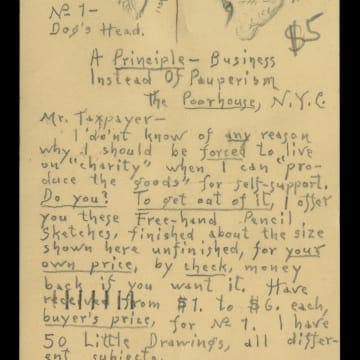 No 1-
Dog's Head.
$5
A Principle - Business
Instead Of Pauperism
The Poorhouse, N.Y.C.
Mr. Taxpayer -
I don't know of any reason
why I should be forced to live
on "charity" when I can "pro-
duce the goods" for self-support.
Do you? To get out of it, I offer
you these Free-hand Pencil
Sketches, finished about the size
shown here unfinished, for your
own price, by check, money
back if you want it. Have
received from $1. to $6. each,
buyer's price, for No 1. I have
50 Little Drawings, all differ-
ent subjects.